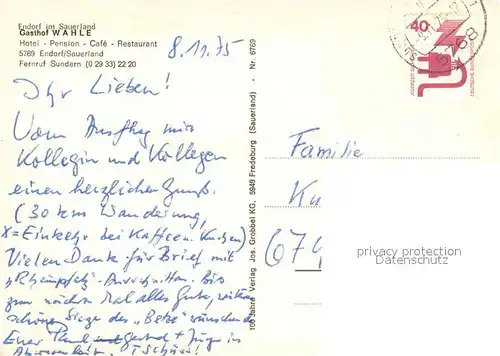 Endorf im Sauerland
Gasthof WAHLE
Hotel - Pension - Café - Restaurant
5769 Endorf/Sauerland
Fernruf Sundern (0 29 33) 22 20
8.11.75
Ihr Lieben!
Vom Ausflug mit
Kollegin und Kollegen
einen herzlichen Gruß.
(30 km Wanderung,
X = Einkehr bei Kaffee u. Kuchen)
Vielen Dank für Brief mit
"Rheinpfalz"-Ausschnitten. Bis
zum nächsten Mal alles Gute, weitere
schöne Siege des "Betze" wünschen
Euer Paul und Gertrud + Jung in
Tschüss!
100 Jahre Verlag Jos. Grobbel KG, 5949 Fredeburg (Sauerland) Nr. 6769
40
5768
DEUTSCHE BUNDESPOST
Familie
Ku
674
privacy protection
Datenschutz